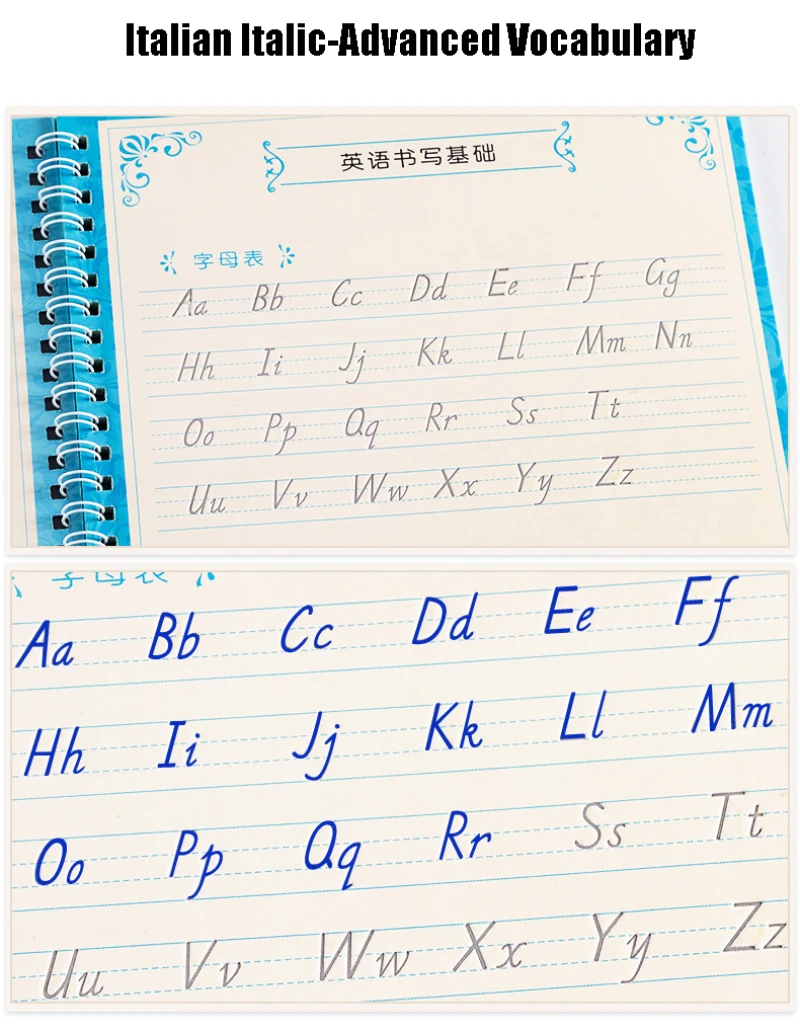 Italian Italic-Advanced Vocabulary
英语书写基础
字母表
Aa Bb Cc Dd Ee Ff Gg
Hh Ii Jj Kk Ll Mm Nn
Oo Pp Qq Rr Ss Tt
Uu Vv Ww Xx Yy Zz
字母表
Aa Bb Cc Dd Ee Ff
Hh Ii Jj Kk Ll Mm
Oo Pp Qq Rr Ss Tt
Uu Vv Ww Xx Yy Zz